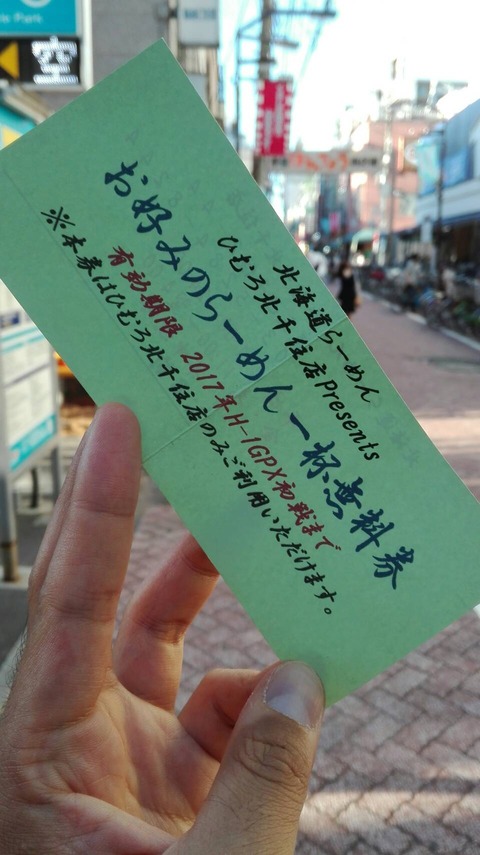 北海道らーめん
ひむろ北千住店presents
お好みのらーめん一杯無料券
有効期限 2017年H-1GPX初戦まで
※本券はひむろ北千住店のみご利用いただけます。
Park